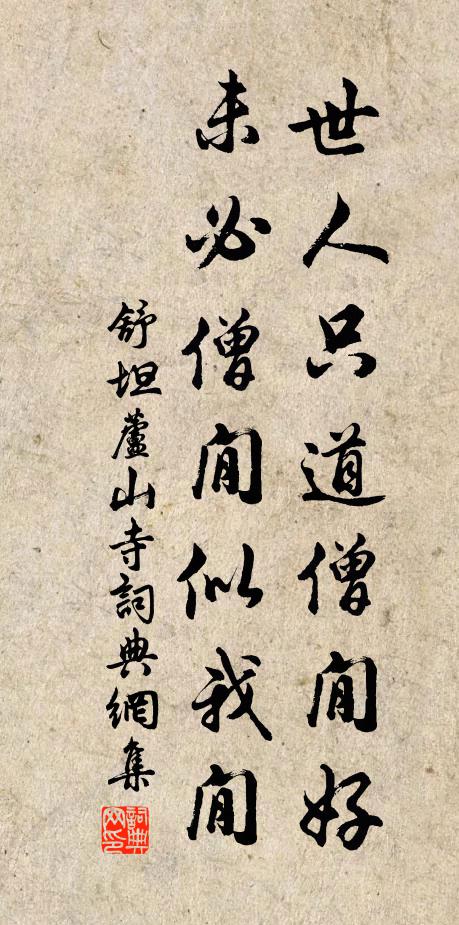 世人只道僧閒好
未必僧閒似我閒
舒坦蘆山寺詞典網集
詞典网印